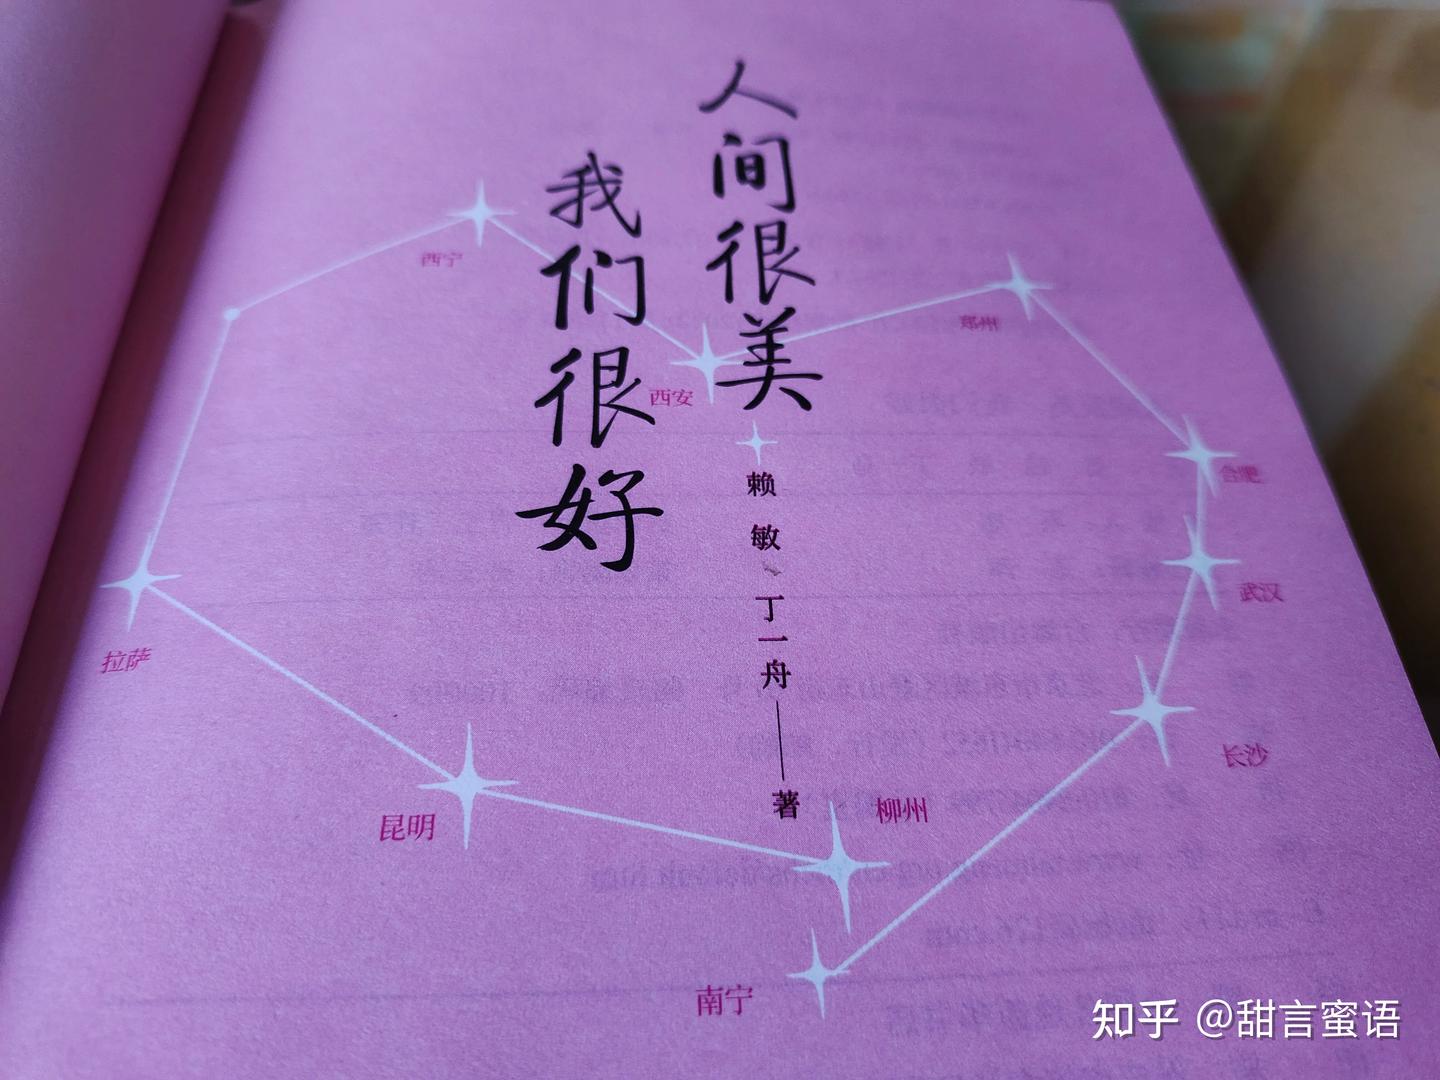 人间很美
我们很好
赖敏
丁一舟
著
西宁
西安
郑州
合肥
武汉
长沙
拉萨
昆明
柳州
南宁
知乎 @甜言蜜语